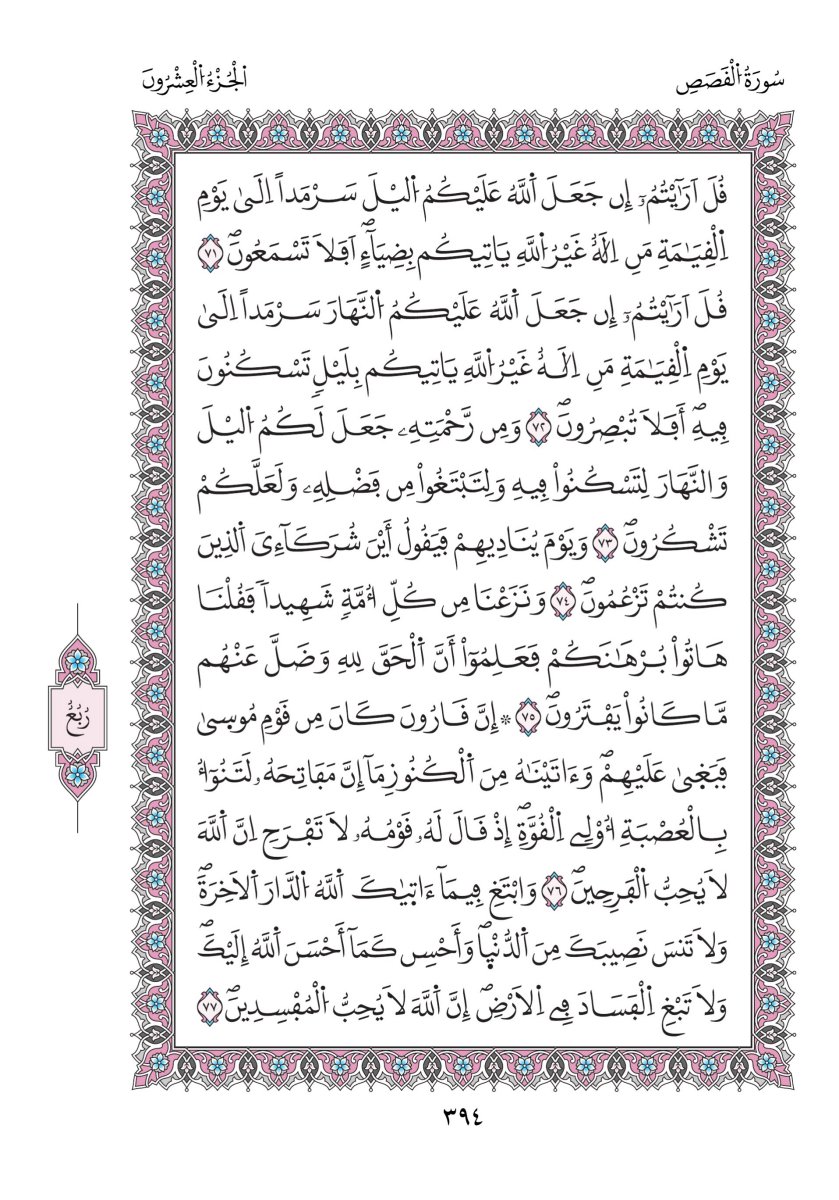 سُورَةُ اُ۬لْقَصَصِ
اَ۬لْجُزْءُ اُ۬لْعِشْرُونَ
قُلَ اَرَٰٓيْتُمُۥٓ إِن جَعَلَ اَ۬للَّهُ عَلَيْكُمُ اُ۬ليْلَ سَرْمَداً اِلَىٰ يَوْمِ
اِ۬لْقِيَٰمَةِ مَنِ اِلَٰهٌ غَيْرُ اُ۬للَّهِ يَاتِيكُم بِضِيَآءٍۖ اَفَلَا تَسْمَعُونَۖ ٧١
قُلَ اَرَٰٓيْتُمُۥٓ إِن جَعَلَ اَ۬للَّهُ عَلَيْكُمُ اُ۬لنَّهَارَ سَرْمَداً اِلَىٰ
يَوْمِ اِ۬لْقِيَٰمَةِ مَنِ اِلَٰهٌ غَيْرُ اُ۬للَّهِ يَاتِيكُم بِلَيْلٖ تَسْكُنُونَ
فِيهِۖ أَفَلَا تُبْصِرُونَۖ ٧٢ وَمِن رَّحْمَتِهِۦ جَعَلَ لَكُمُ اُ۬ليْلَ
وَالنَّهَارَ لِتَسْكُنُواْ فِيهِ وَلِتَبْتَغُواْ مِن فَضْلِهِۦ وَلَعَلَّكُمْ
تَشْكُرُونَۖ ٧٣ وَيَوْمَ يُنَادِيهِمْ فَيَقُولُ أَيْنَ شُرَكَآءِيَ اَ۬لذِينَ
كُنتُمْ تَزْعُمُونَۖ ٧٤ وَنَزَعْنَا مِن كُلِّ أُمَّةٖ شَهِيداٗ فَقُلْنَا
هَاتُواْ بُرْهَٰنَكُمْ فَعَلِمُوٓاْ أَنَّ اَ۬لْحَقَّ لِلهِ وَضَلَّ عَنْهُم
مَّا كَانُواْ يَفْتَرُونَۖ ٧٥ ۞ إِنَّ قَٰرُونَ كَانَ مِن قَوْمِ مُوسۭيٰ
فَبَغۭيٰ عَلَيْهِمْۖ وَءَاتَيْنَٰهُ مِنَ اَ۬لْكُنُوزِ مَآ إِنَّ مَفَاتِحَهُۥ لَتَنُوٓأُ
بِالْعُصْبَةِ أُوْلِے اِ۬لْقُوَّةِۖ إِذْ قَالَ لَهُۥ قَوْمُهُۥ لَا تَفْرَحِ اِنَّ اَ۬للَّهَ
لَا يُحِبُّ اُ۬لْفَرِحِينَۖ ٧٦ وَابْتَغِ فِيمَآ ءَاتۭيٰكَ اَ۬للَّهُ اُ۬لدَّارَ اَ۬لَاخِرَةَۖ
وَلَا تَنسَ نَصِيبَكَ مِنَ اَ۬لدُّنْيۭاۖ وَأَحْسِن كَمَآ أَحْسَنَ اَ۬للَّهُ إِلَيْكَۖ
وَلَا تَبْغِ اِ۬لْفَسَادَ فِے اِ۬لَارْضِۖ إِنَّ اَ۬للَّهَ لَا يُحِبُّ اُ۬لْمُفْسِدِينَۖ ٧٧
رُبُعُ
٣٩٤